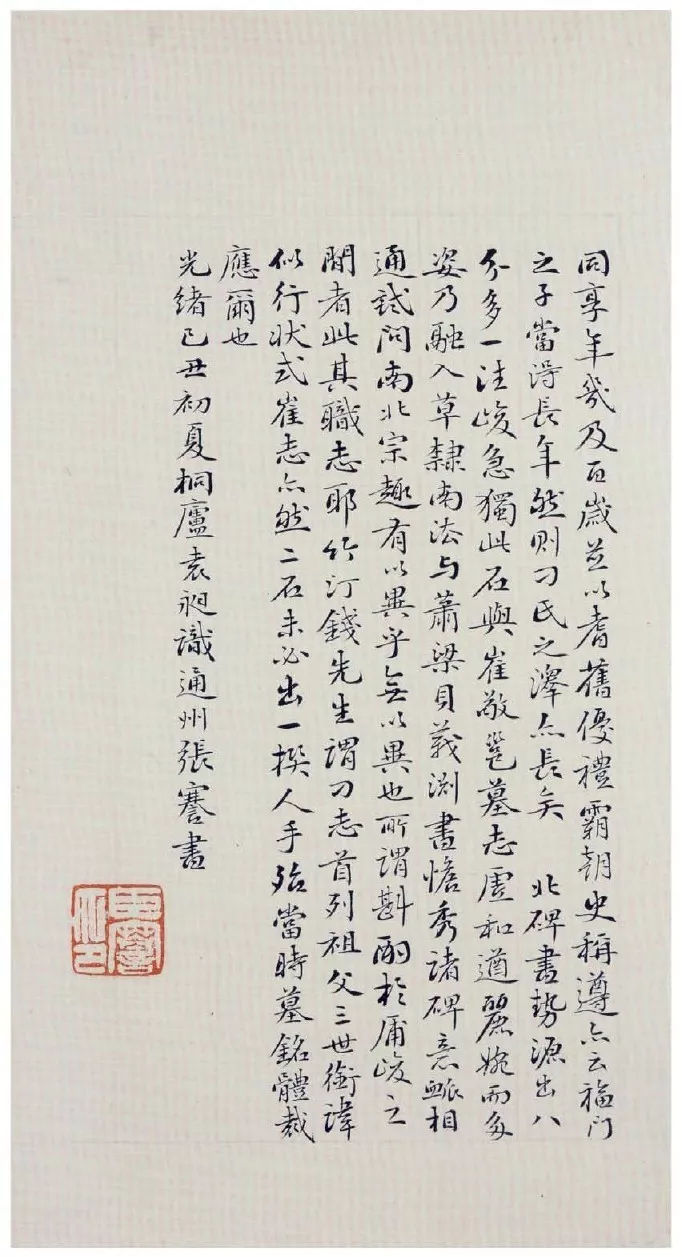 同享年幾及百歲並以耆舊優禮霸朝史稱遵亦云福門
之子當得長年然則刁氏之澤亦長矣 北碑書勢源出八
分多一注峻急獨此石與崔敬邕墓志虛和遒麗婉而多
姿乃融入草隸南法与蕭梁貝義淵書憺秀諸碑意脈相
通試問南北宗趣有以異乎無以異也所謂斟酌於庸峻之
間者此其職志耶竹汀錢先生謂刁志首列祖父三世銜諱
似行狀式崔志亦然二石未必出一撰人手殆當時墓銘體裁
應爾也
光緒己丑初夏桐廬袁昶識通州張謇書